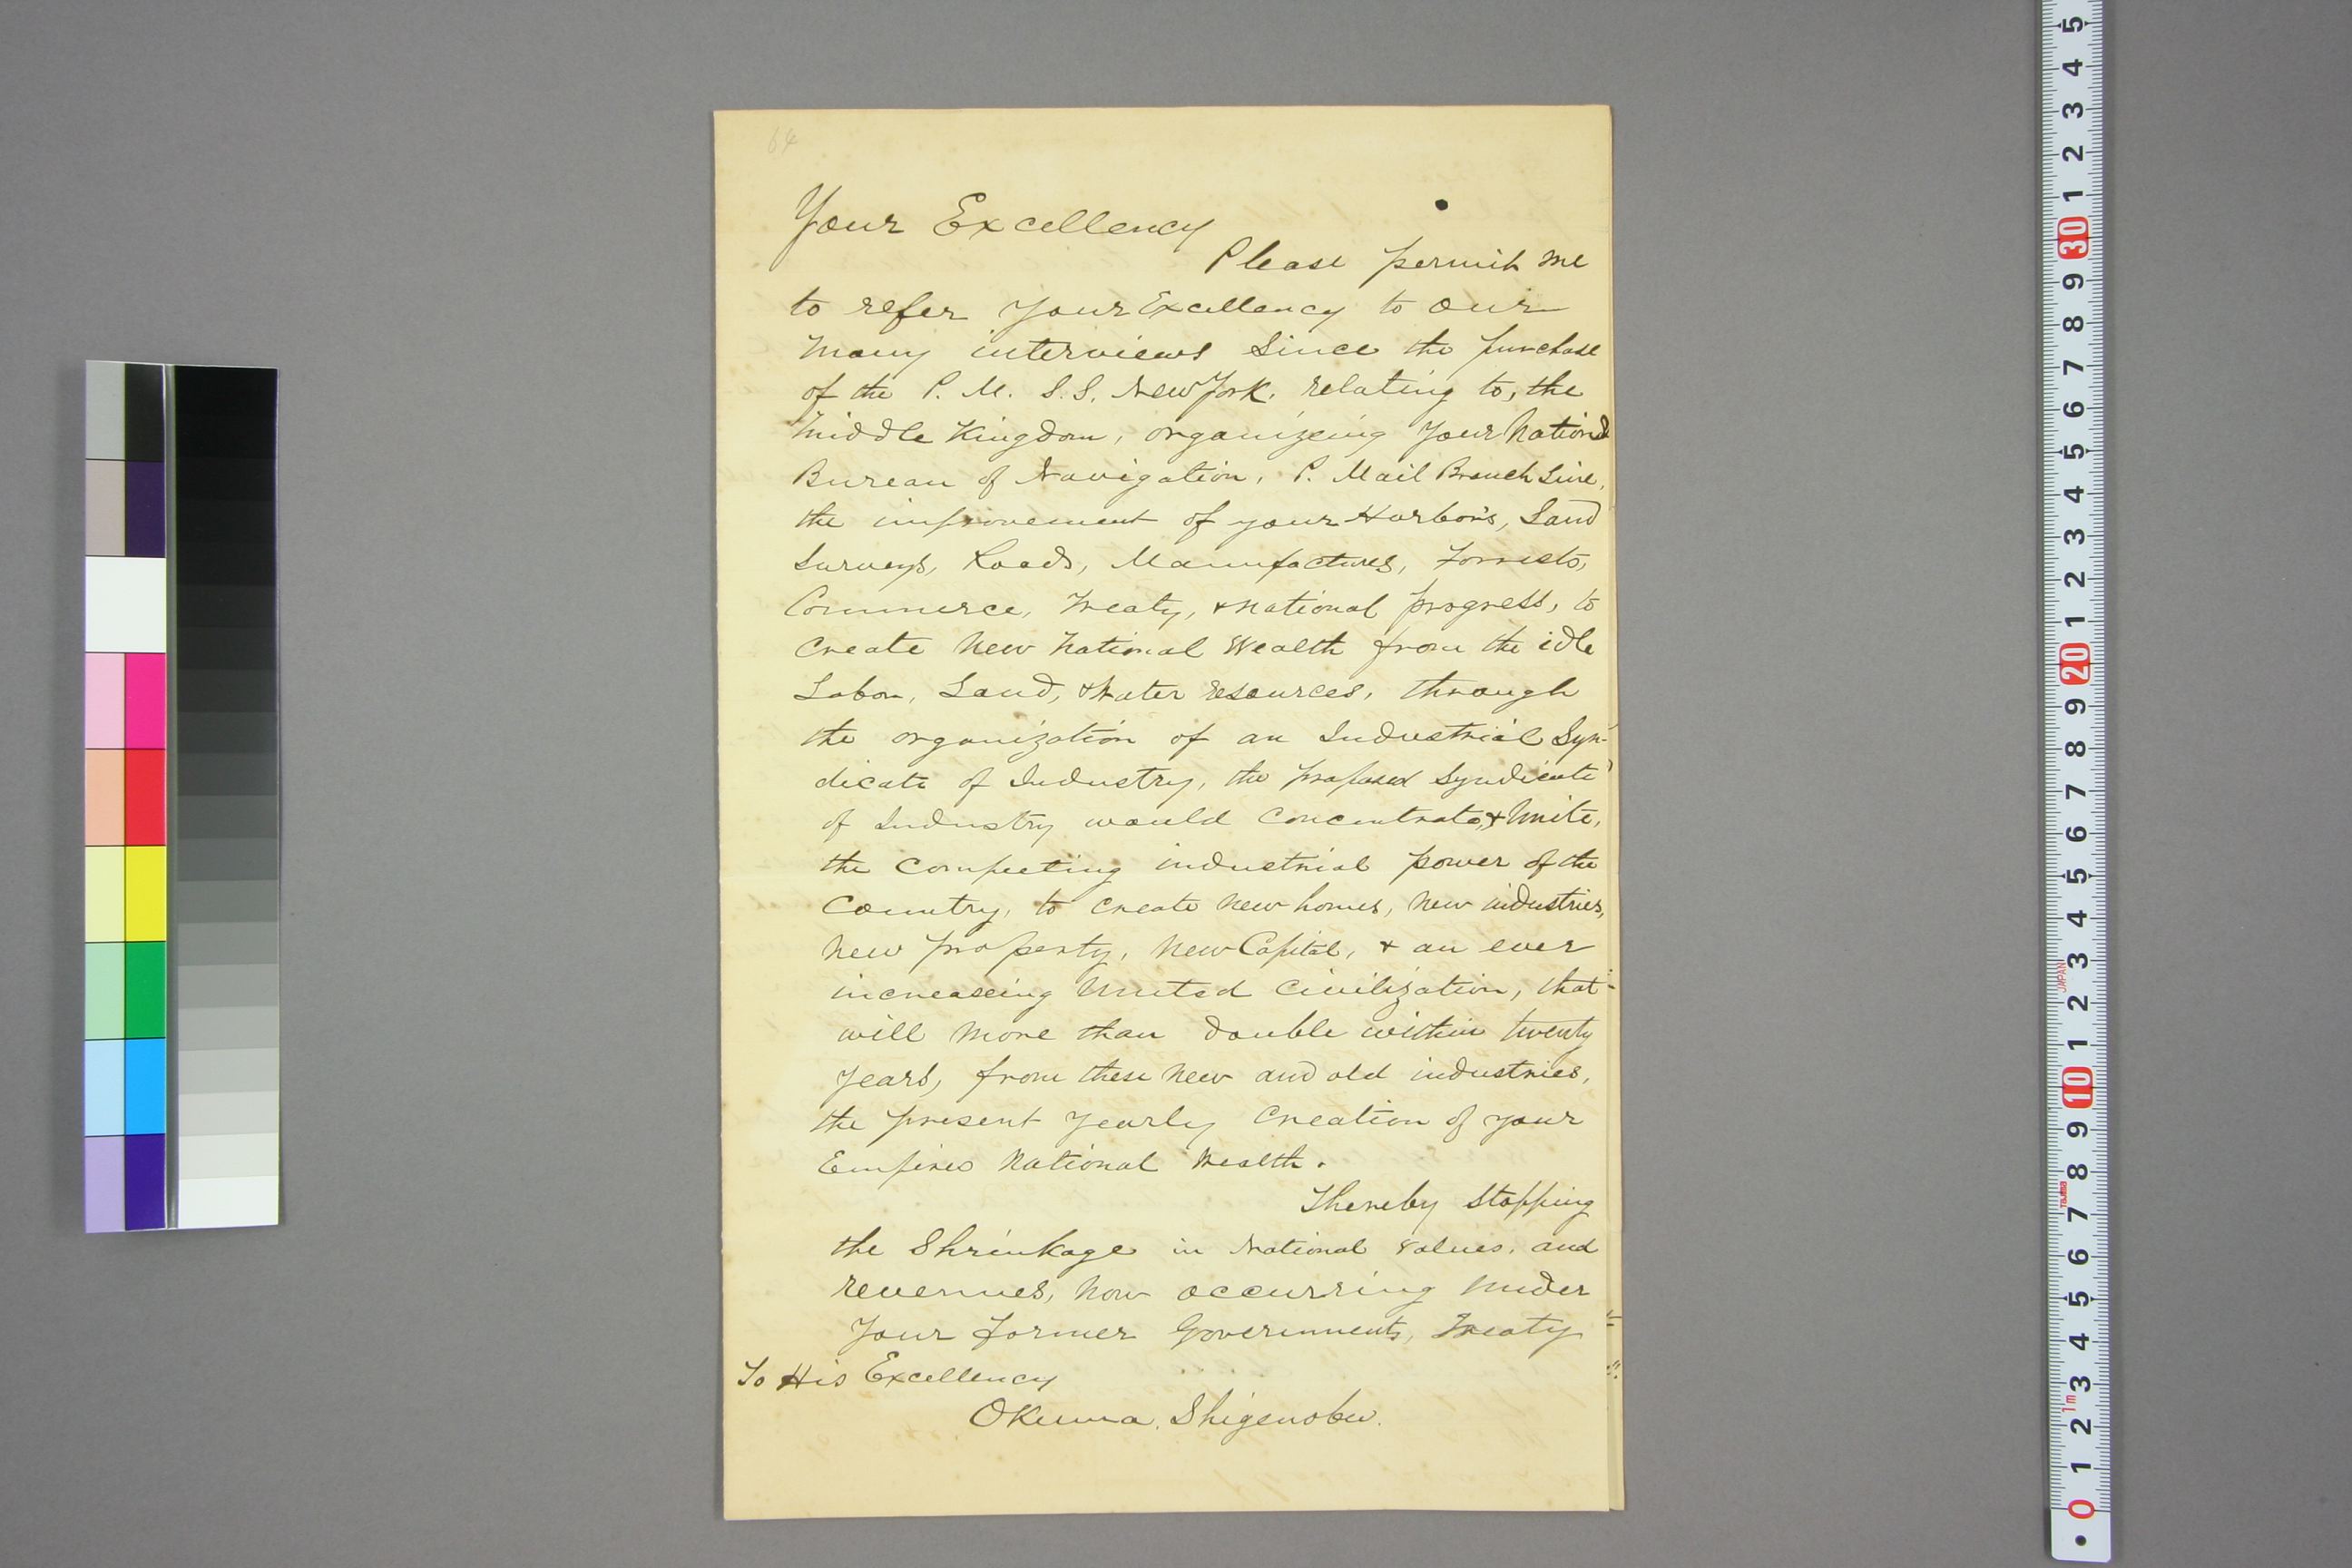 64
Your Excellency
Please permit me
to refer Your Excellency to our
many interviews since the purchase
of the P. M. S.S. New York, relating to, the
Middle Kingdom, organizeing Your National
Bureau of Navigation, P. Mail Branch Line,
the improvement of your Harbors, Land
Surveys, Roads, Manufactures, Forrests,
Commerce, Treaty, & national progress, to
Create New National Wealth from the idle
Labor, Land, & Water resources, through
the organization of an Industrial Syn-
dicate of Industry, the proposed Syndicate
of Industry would Concentrate, & Unite,
the Competing industrial power of the
Country, to Create New homes, New industries,
New property, New Capital, & an ever
increaseing United Civilization, that
will more than double within twenty
Years, from these New and old industries,
the present Yearly Creation of your
Empires National Wealth.
Thereby Stopping
the Shrinkage in National Values, and
revenues, Now occurring Under
Your former Governments, Treaty
To His Excellency
Okuma, Shigenobu.
5
4
3
2
1
30
9
8
7
6
5
4
3
2
1
20
9
8
7
6
5
4
3
JAPAN
2
1
10
9
8
Tajima
7
6
5
4
3
1m
2
1
0